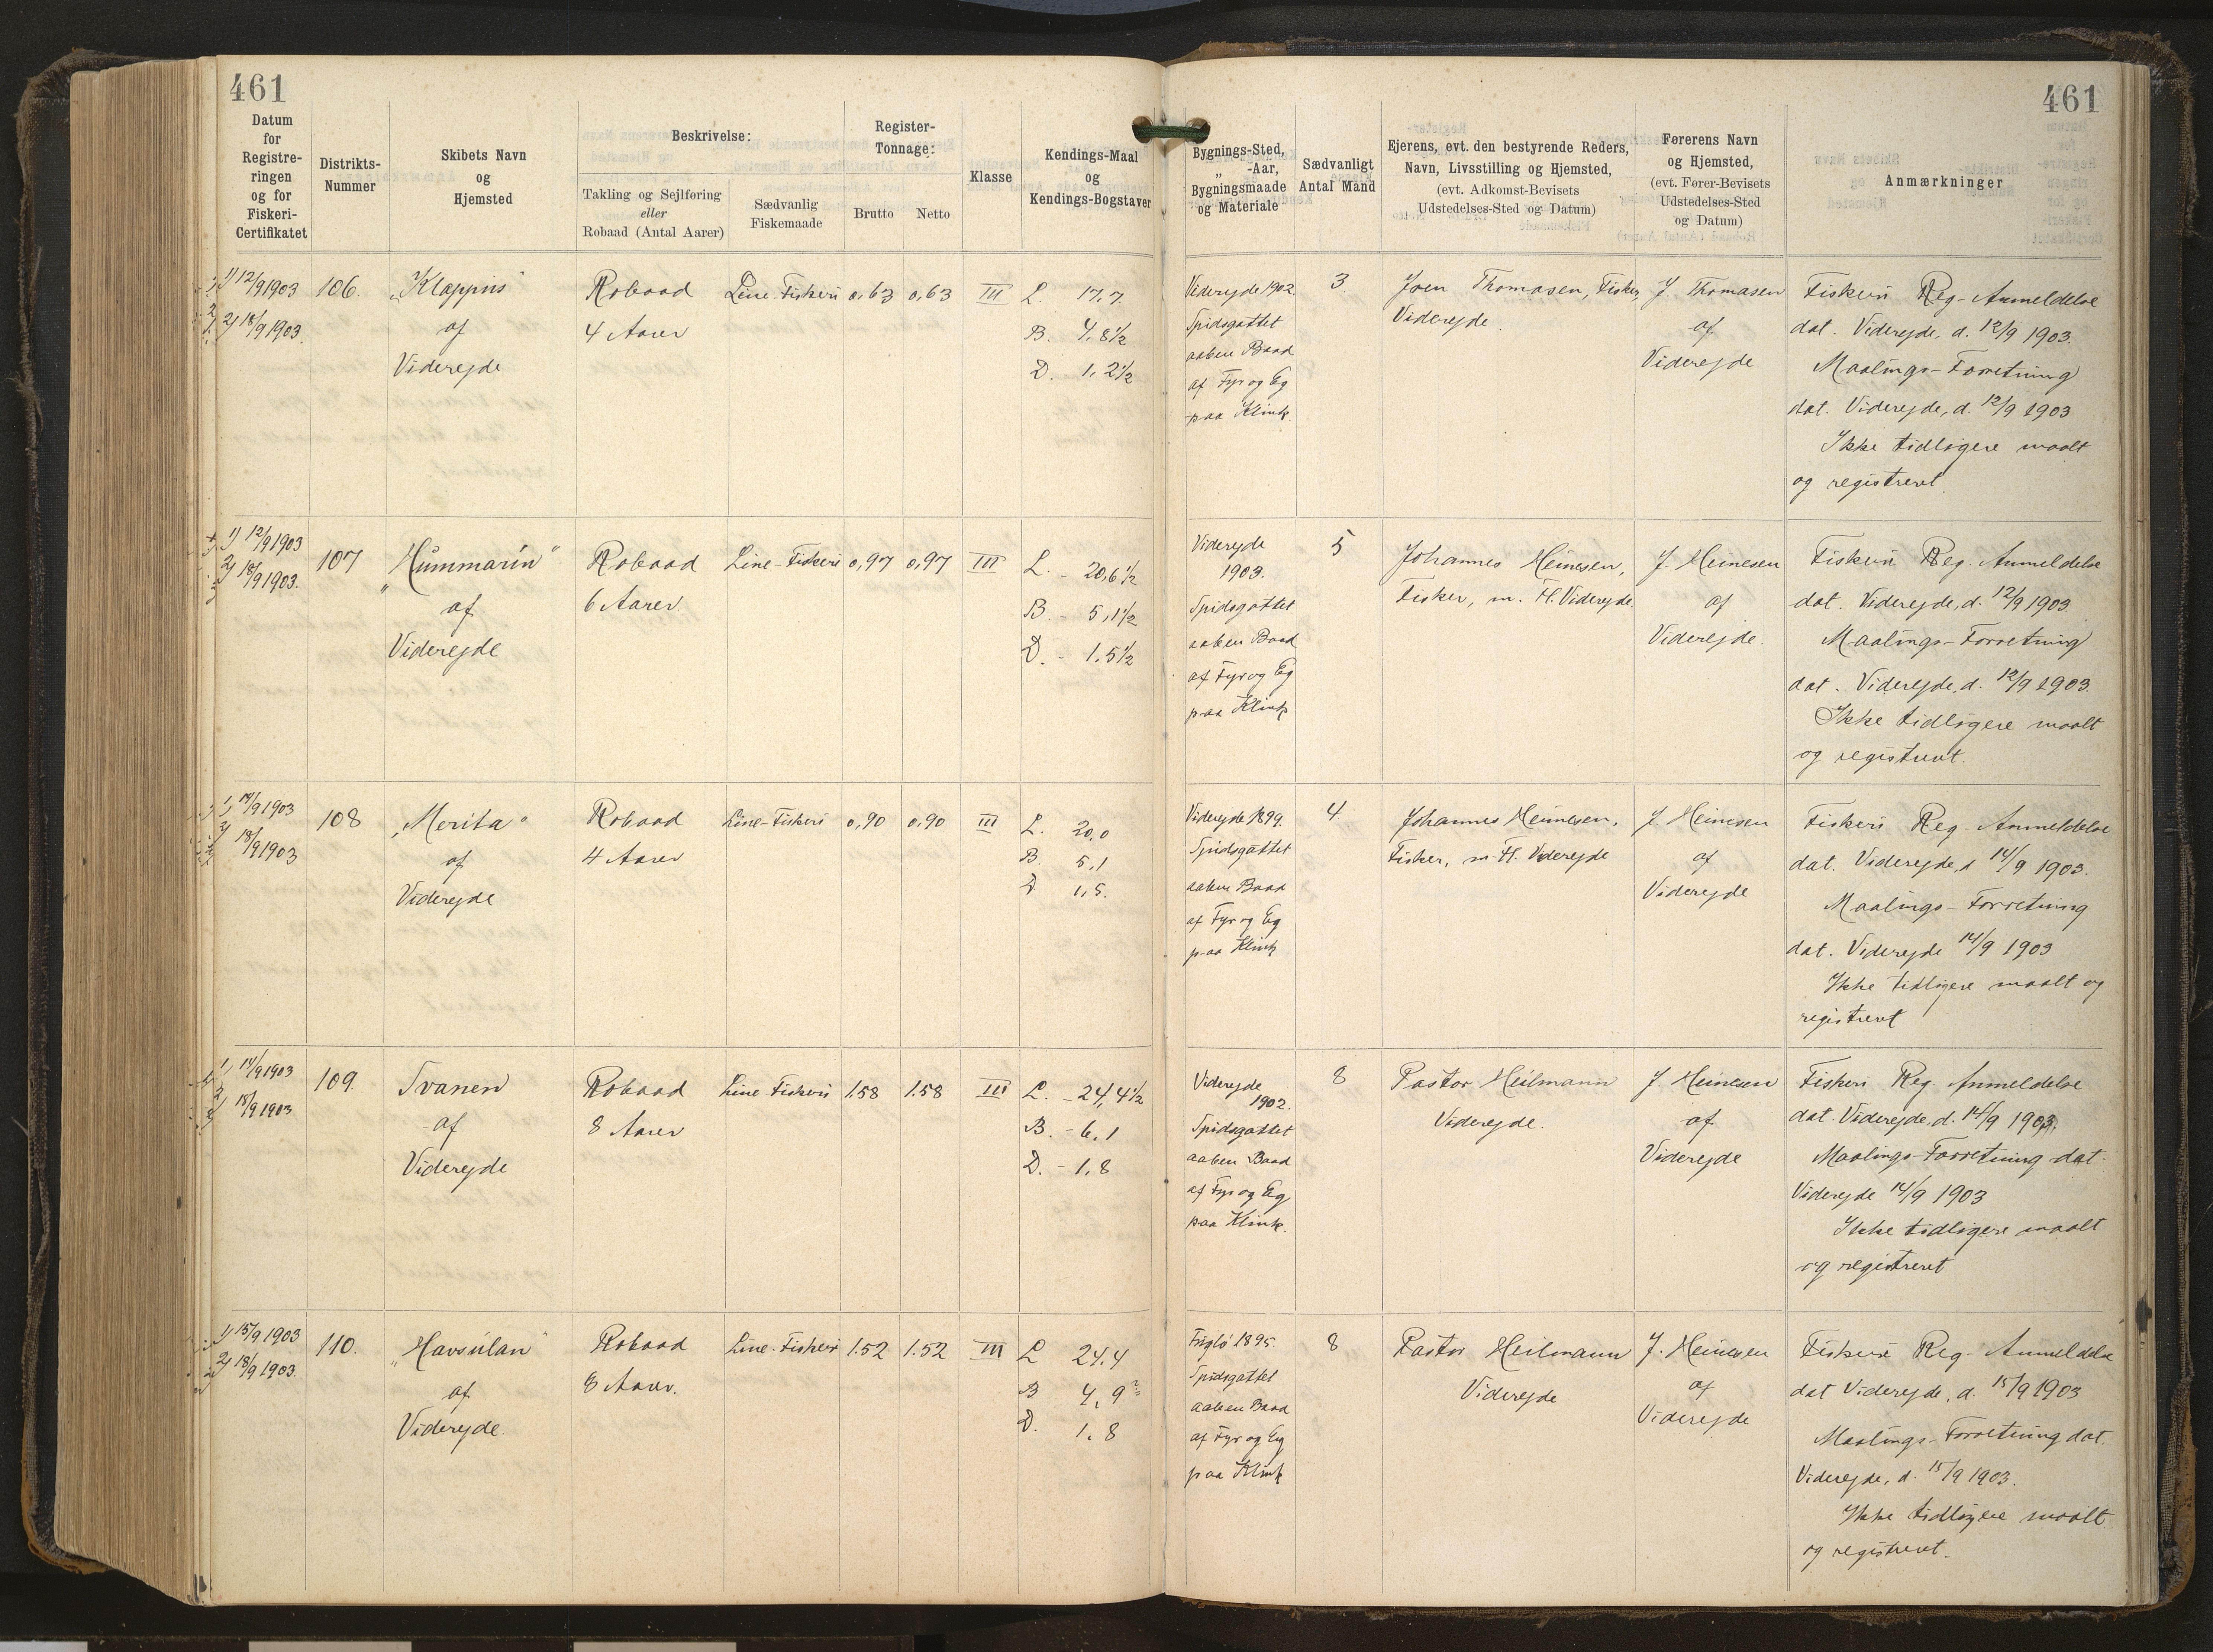 461
461
Datum
for
Registre-
ringen
og for
Fiskeri-
Certifikatet
Distrikts-
Nummer
Skibets Navn
og
Hjemsted
Beskrivelse:
Takling og Sejlføring
eller
Robaad (Antal Aarer)
Sædvanlig
Fiskemaade
Register-
Tonnage:
Brutto
Netto
Klasse
Kendings-Maal
og
Kendings-Bogstaver
Bygnings-Sted,
„ -Aar,
Bygningsmaade
og Materiale
Sædvanligt
Antal Mand
Ejerens, evt. den bestyrende Reders,
Navn, Livsstilling og Hjemsted,
(evt. Adkomst-Bevisets
Udstedelses-Sted og Datum)
Førerens Navn
og Hjemsted,
(evt. Fører-Bevisets
Udstedelses-Sted
og Datum)
Anmærkninger
1) 12/9 1903
2) 18/9 1903.
106.
„Klappus"
af
Viderejde
Robaad
4 Aarer
Line-Fiskeri
0,63
0,63
III
L. 17,7
B. 4,8½
D. 1,2½
Viderejde 1902.
Spidsgattet
aaben Baad
af Fyr og Eg
paa Klink.
3.
Joen Thomasen, Fisker,
Viderejde.
J. Thomasen
af
Viderejde
Fiskeri Reg-Anmeldelse
dat. Viderejde, d. 12/9 1903.
Maalings-Forretning
dat. Viderejde, d. 12/9 1903
Ikke tidligere maalt
og registreret.
1) 12/9 1903
2) 18/9 1903.
107
„Hummarin"
af
Viderejde
Robaad
6 Aarer.
Line-Fiskeri
0,97
0,97
III
L. - 20,6½
B. - 5,1½
D. - 1,5½
Viderejde
1903.
Spidsgattet
aaben Baad
af Fyr og Eg
paa Klink
5
Johannes Heinesen,
Fisker, m. Fl. Viderejde
J. Heinesen
af
Viderejde.
Fiskeri Reg. Anmeldelse
dat. Viderejde, d. 12/9 1903
Maalings-Forretning
dat. Viderejde, d. 12/9 1903.
Ikke tidligere maalt
og registreret.
1) 14/9 1903
2) 18/9 1903
108
„Merita"
af
Viderejde
Robaad
4 Aarer
Line-Fiskeri
0,90
0,90
III
L. 20,0
B. 5,1
D 1,5.
Viderejde 1899.
Spidsgattet
aaben Baad
af Fyr og Eg
paa Klink
4
Johannes Heinesen,
Fisker, m. Fl. Viderejde
J. Heinesen
af
Viderejde
Fiskeri Reg-Anmeldelse
dat. Viderejde, d 14/9 1903.
Maalings-Forretning
dat. Viderejde 14/9 1903
Ikke tidligere maalt og
registreret
1) 14/9 1903
2) 18/9 1903
109.
Svanen
af
Viderejde
Robaad
8 Aarer
Line-Fiskeri
1.58
1.58
III
L. - 24,4½
B. - 6,1
D. - 1,8
Viderejde
1902.
Spidsgattet
aaben Baad
af Fyr og Eg
paa Klink.
8
Pastor Heilmann
Viderejde.
J. Heinesen
af
Viderejde
Fiskeri Reg. Anmeldelse
dat. Viderejde, d. 14/9 1903.
Maalings-Forretning dat.
Viderejde 14/9 1903
Ikke tidligere maalt
og registreret
1) 15/9 1903
2) 18/9 1903.
110.
„Havsúlan"
af
Viderejde.
Robaad
8 Aarer.
Line-Fiskeri
1.52
1.52
III
L 24,4
B 4,9
D. 1,8
Fuglø 1895.
Spidsgattet
aaben Baad
af Fyr og Eg
paa Klink
8
Pastor Heilmann
Viderejde
J. Heinesen
af
Viderejde
Fiskeri Reg-Anmeldelse
dat Viderejde, d. 15/9 1903
Maalings-Forretning dat.
Viderejde, d. 15/9 1903.
Ikke tidligere maalt
og registreret.